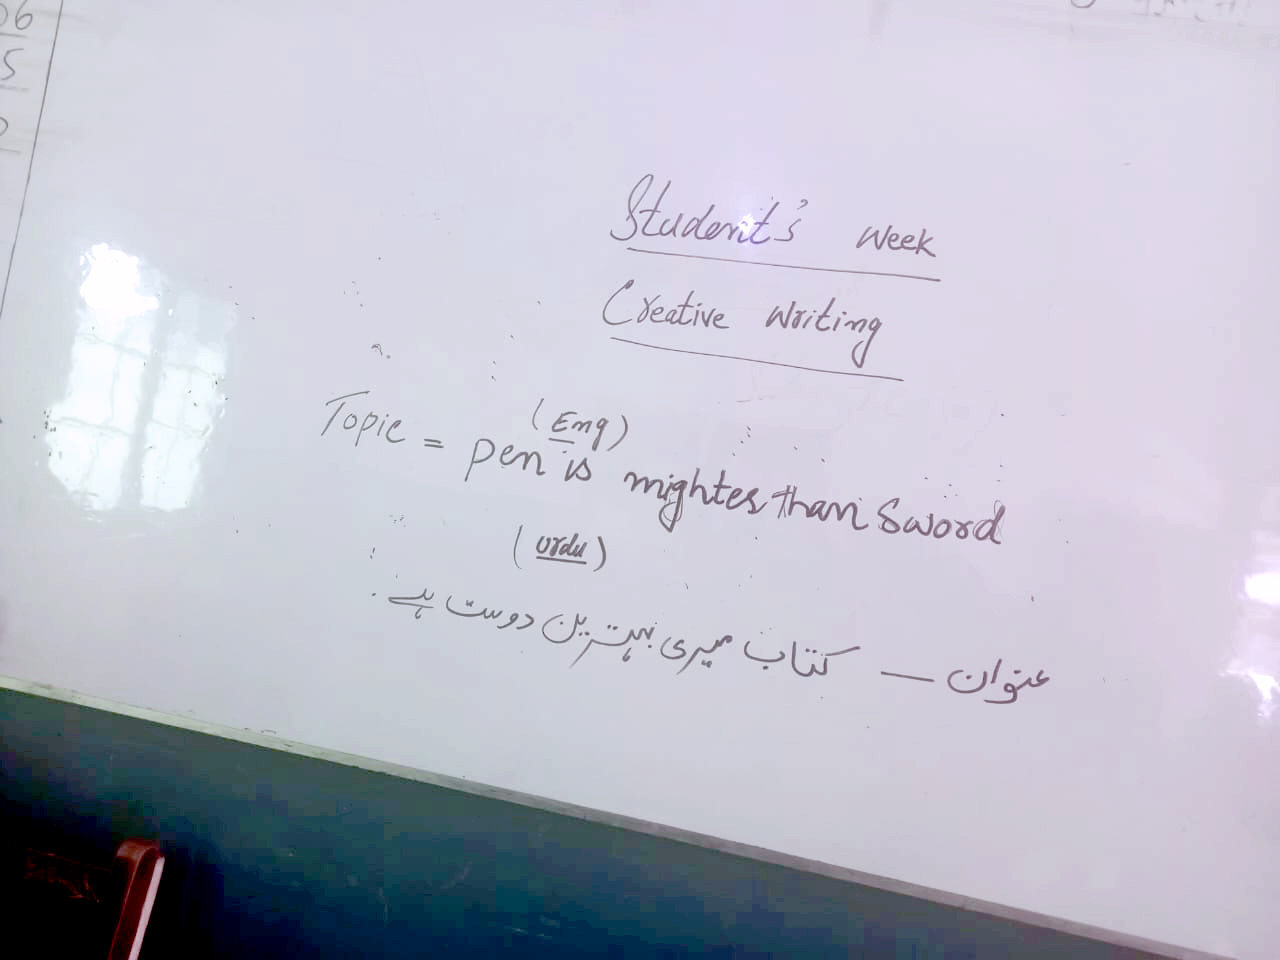 06
5
Student's Week
Creative Writing
(Eng)
Topic = pen is mightes than Sword
(urdu)
عنوان — کتاب میری بہترین دوست ہے۔